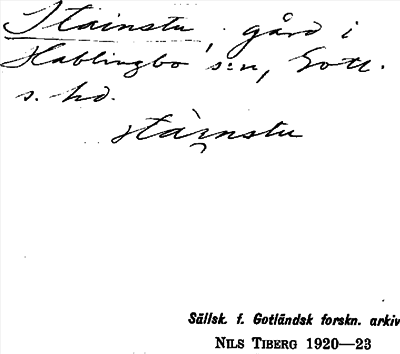 Stainstu, gård i
Hablingbo s:n, Gotl.
s. hd.
stàinstu
Sällsk. f. Gotländsk forskn. arkiv
NILS TIBERG 1920—23